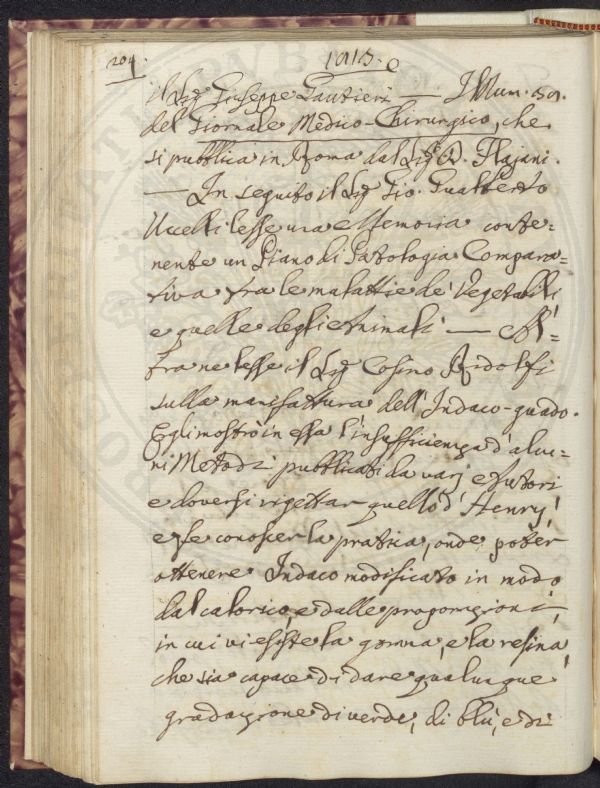 204.
1813.
il Sig.r Giuseppe Gautieri — Il Num. 59.
del Giornale Medico-Chirurgico, che
si pubblica in Roma dal Sig.r D. Flajani.
— In seguito il Sig.r Gio. Gualberto
Uccelli lesse una Memoria conte=
nente un Piano di Patologia Compara=
tiva fra le malattie de' Vegetabili
e quelle degli Animali — Al=
tra ne lesse il Sig.r Cosimo Ridolfi
sulla manifattura dell'Indaco-guado.
Egli mostrò in essa l'insufficienza d'alcu=
ni Metodi pubblicati da varj Autori
e doversi rigettar quello d'Henry,
e fe conoscer la pratica, onde poter
ottenere Indaco modificato in modo
dal calorico, e dalle proporzioni,
in cui vi esiste la gomma, e la resina,
che sia capace di dare qualunque
gradazione di verde, di blù, e di